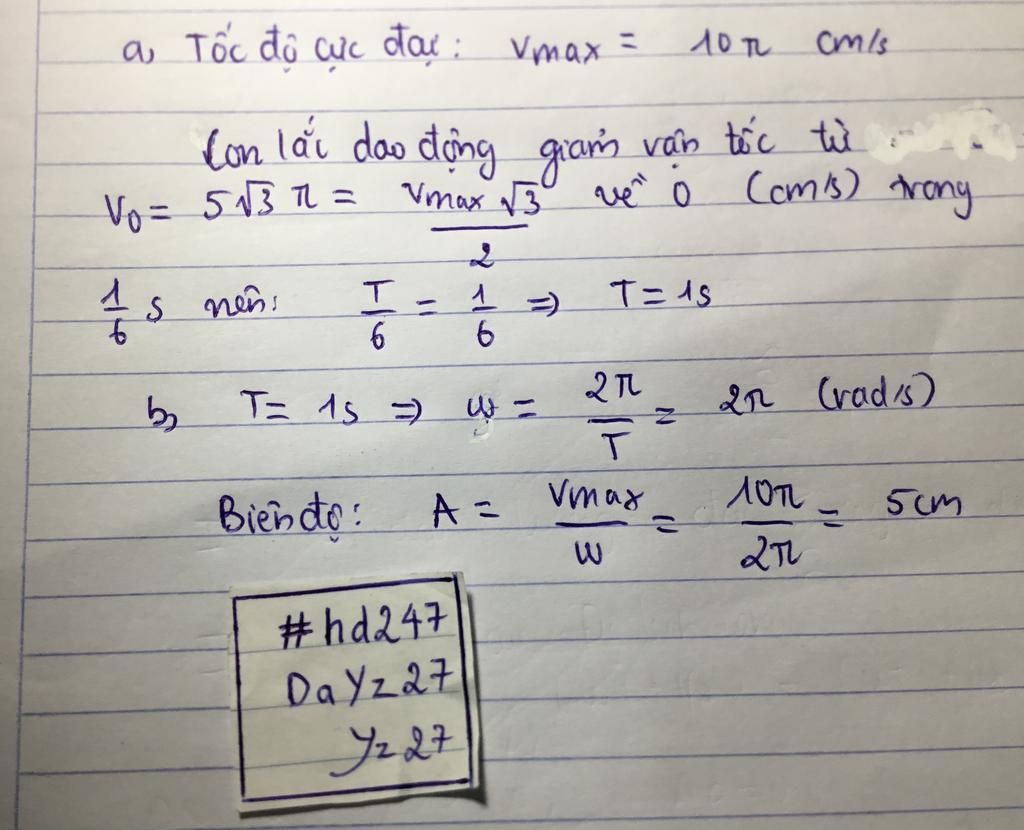 a, Tốc độ cực đại: vmax = 10π cm/s
Con lắc dao động giảm vận tốc từ
v0 = 5√3 π = vmax√3/2 về 0 (cm/s) trong
1/6 s nên: T/6 = 1/6 => T = 1s
b, T = 1s => ω = 2π/T = 2π (rad/s)
Biên độ: A = vmax/ω = 10π/2π = 5cm
#hd247
DaYz27
Yz27